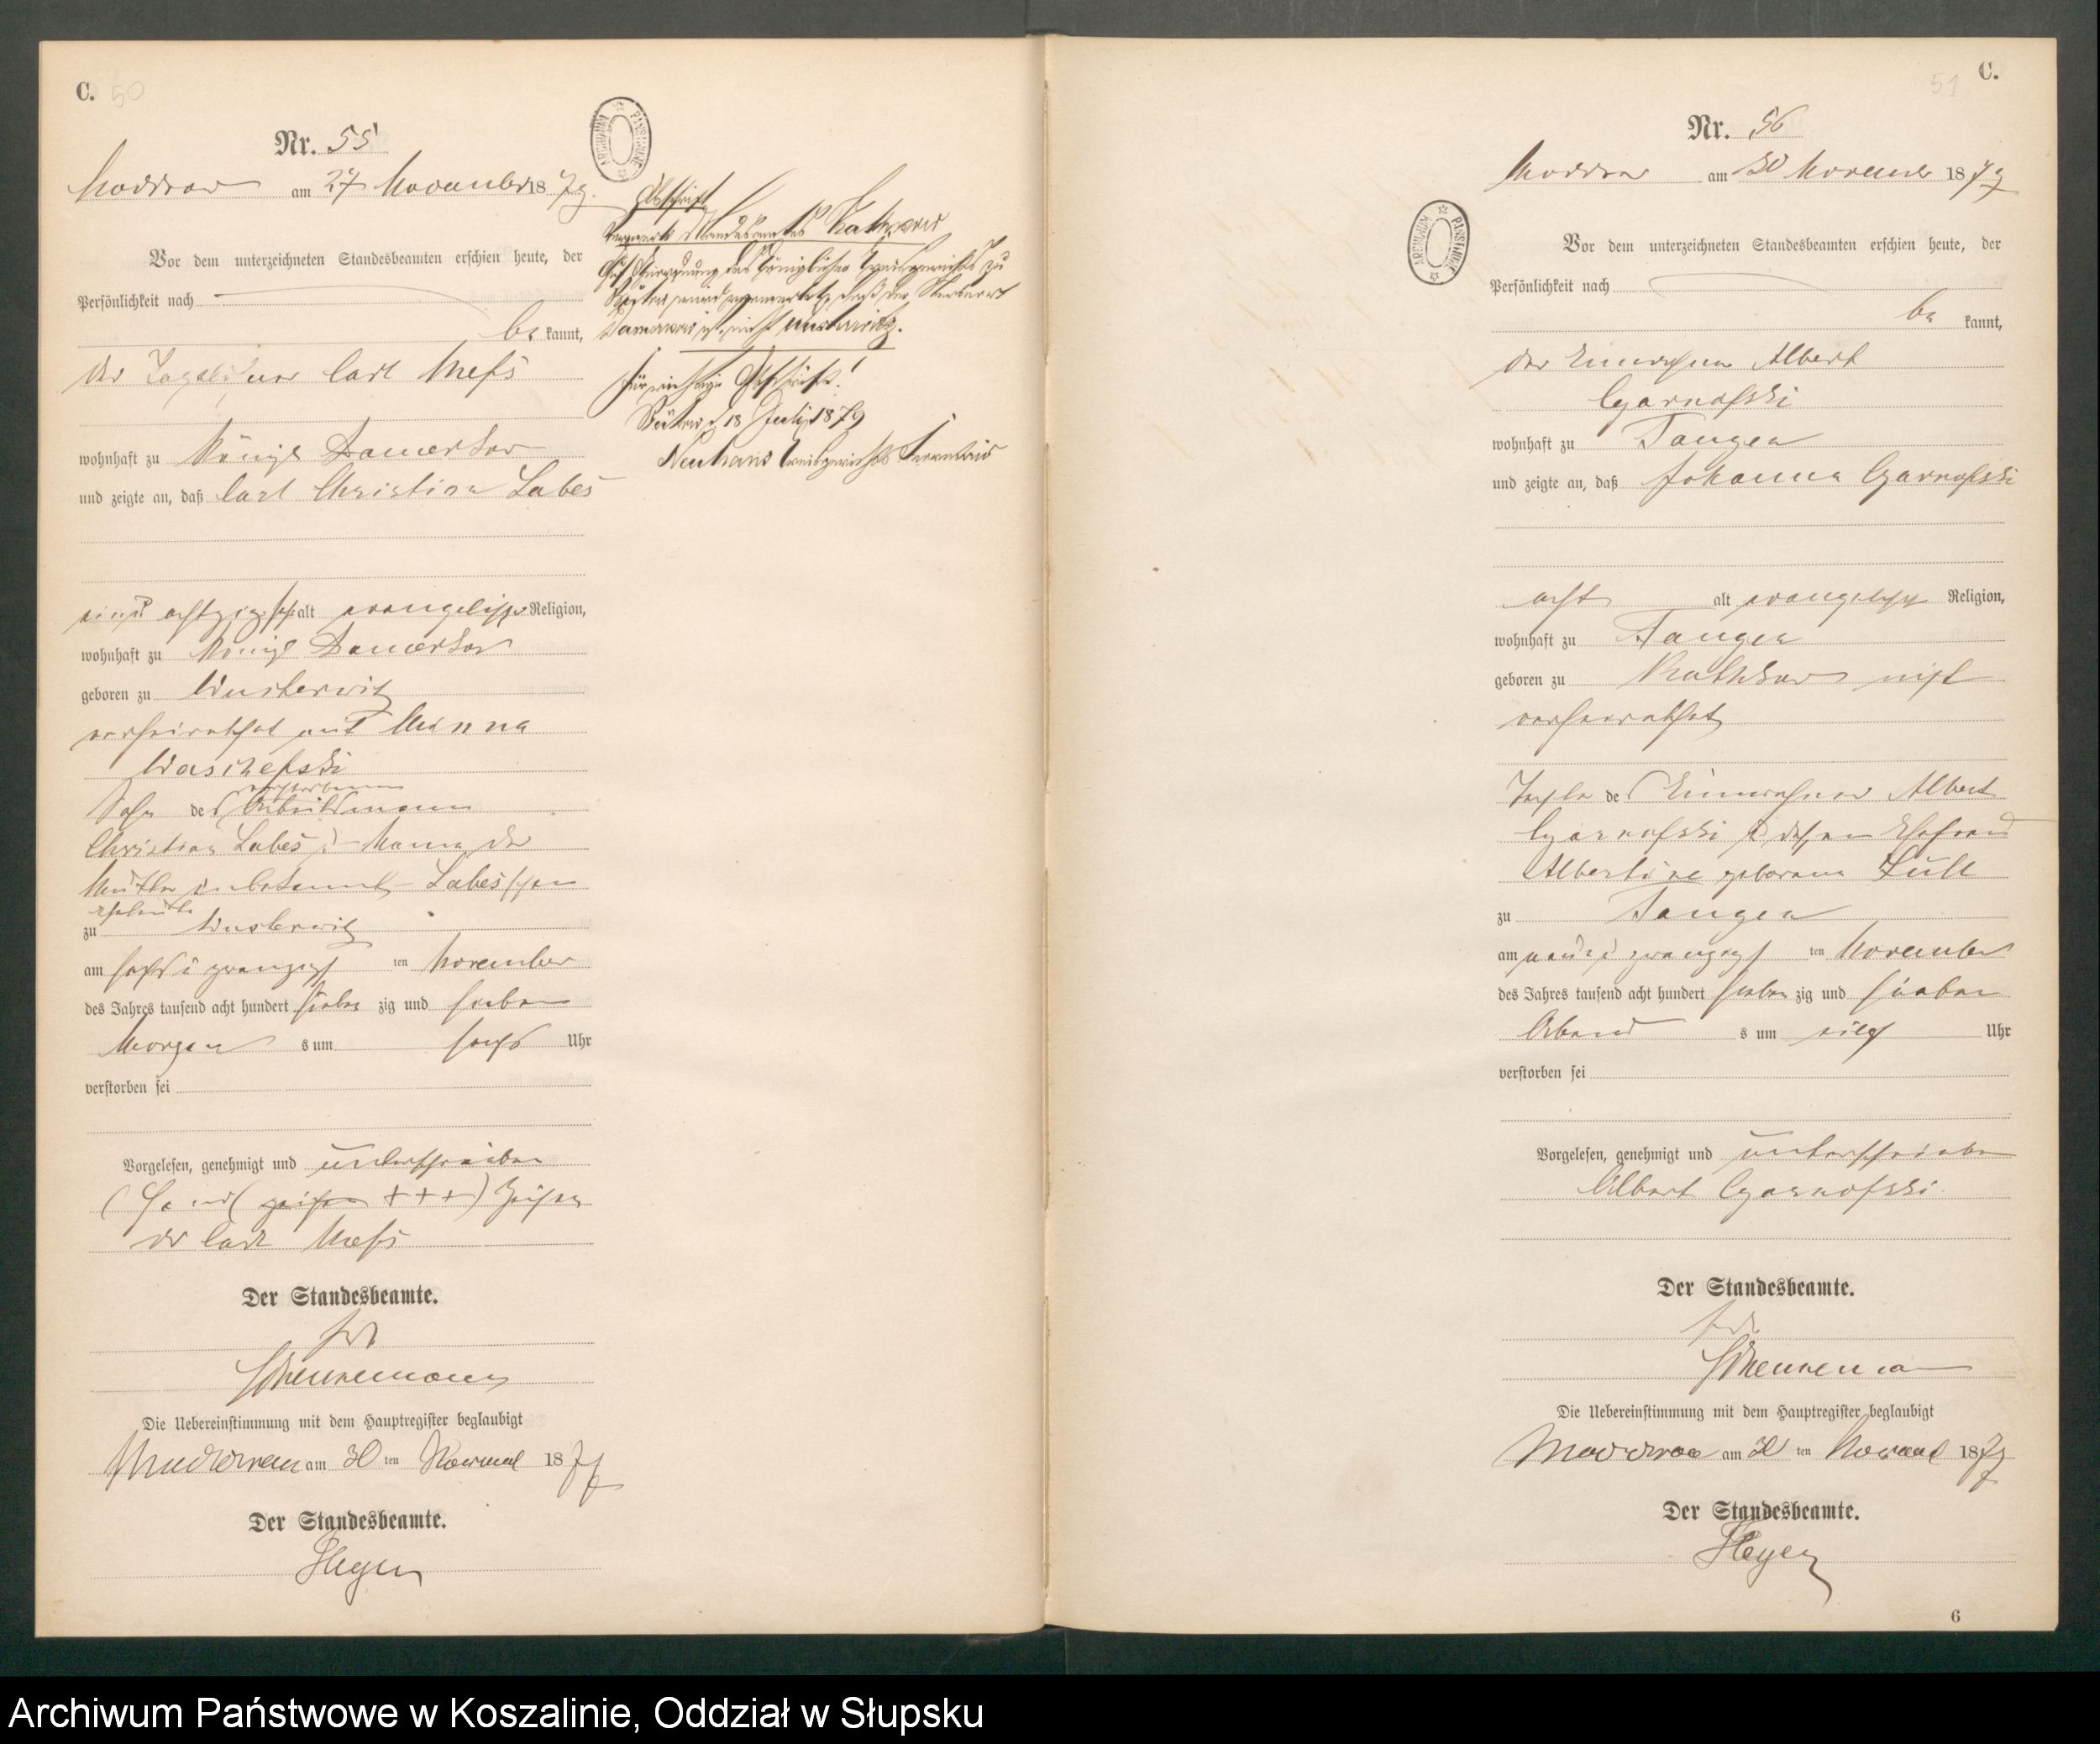 C. 50
Nr. 55
Moddrow am 27 November 1877.
Vor dem unterzeichneten Standesbeamten erschien heute, der
Persönlichkeit nach
be kannt,
der Carl Mess
wohnhaft zu Königl Damerkow
und zeigte an, daß Carl Christian Labes
alt evangelischer Religion,
wohnhaft zu Königl Damerkow
geboren zu Wusterwitz
verheirathet mit Minna
Sohn des verstorbenen Arbeitsmann
Christian Labes, Name der
Mutter unbekannt Labesschen
Eheleute
zu Wusterwitz
am sechs u zwanzigst ten November
des Jahres tausend acht hundert sieben zig und sieben
Morgen s um sechs Uhr
verstorben sei
Vorgelesen, genehmigt und unterschrieben
(Hand zeichen + + +) Zeichen
der Carl Mess
Der Standesbeamte.
Die Uebereinstimmung mit dem Hauptregister beglaubigt
Moddrow am 30 ten November 1877
Der Standesbeamte.
ARCHIWUM PAŃSTWOWE
Abschrift
Auf Anordnung des Königlichen Kreisgerichts zu
Bütow wird vermerkt, daß der Sterbeort
Damerkow ist, nicht Wusterwitz.
Für richtige Abschrift!
Bütow d 18 Juli 1879
Neuhaus Kreisgerichts Secretair
51 C.
Nr. 56
Moddrow am 30 November 1877
ARCHIWUM PAŃSTWOWE
Vor dem unterzeichneten Standesbeamten erschien heute, der
Persönlichkeit nach
be kannt,
der Einwohner Albert
Czarnofski
wohnhaft zu Tangen
und zeigte an, daß Johanna Czarnofski
alt evangelisch Religion,
wohnhaft zu Tangen
geboren zu nicht
verheirathet
Tochter des Einwohner Albert
Czarnofski u dessen Ehefrau
Albertine geborene
zu Tangen
am neun u zwanzigst ten November
des Jahres tausend acht hundert sieben zig und sieben
Abend s um eilf Uhr
verstorben sei
Vorgelesen, genehmigt und unterschrieben
Albert Czarnofski
Der Standesbeamte.
Die Uebereinstimmung mit dem Hauptregister beglaubigt
Moddrow am 30 ten November 1877
Der Standesbeamte.
6
Archiwum Państwowe w Koszalinie, Oddział w Słupsku